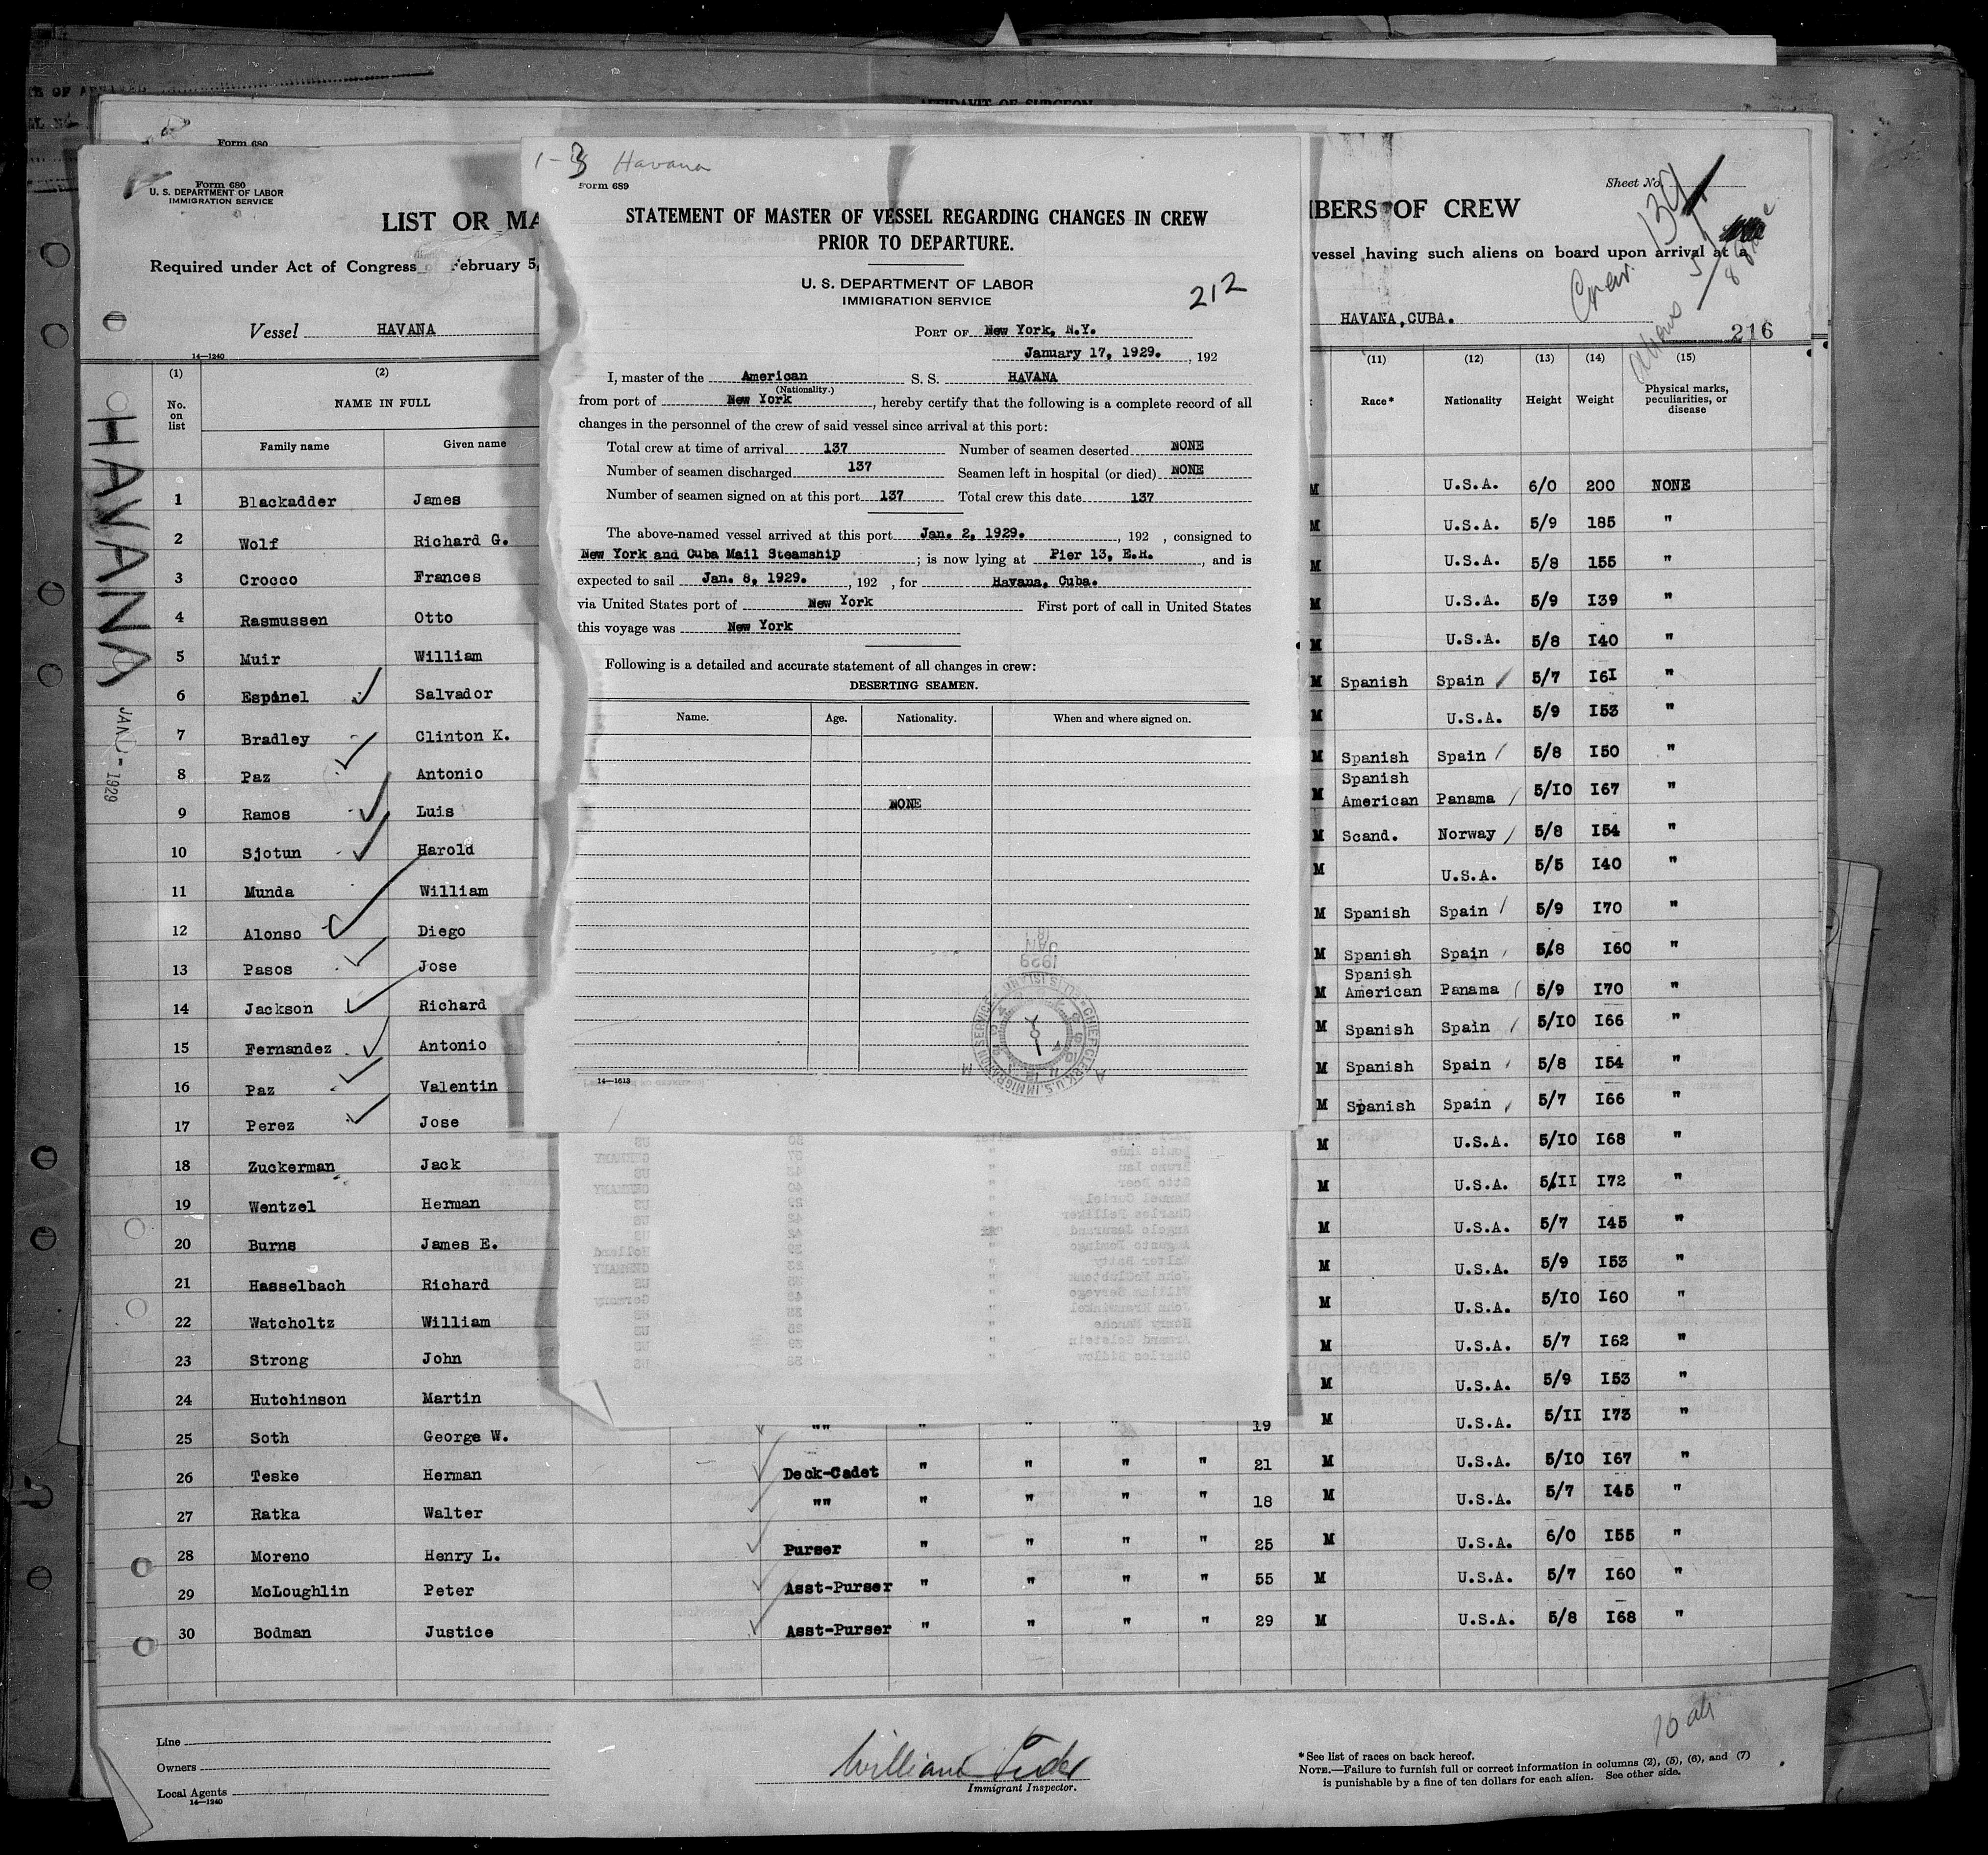 AFFIDAVIT OF SURGEON
Form 680
Form 680
U. S. DEPARTMENT OF LABOR
IMMIGRATION SERVICE
LIST OR MA
Required under Act of Congress of February 5,
Vessel HAVANA
14—1240
HAVANA
1929
(1) (2)
No. on list
NAME IN FULL
Family name Given name
1 Blackadder James
2 Wolf Richard G.
3 Crocco Frances
4 Rasmussen Otto
5 Muir William
6 Espinel Salvador
7 Bradley Clinton K.
8 Paz Antonio
9 Ramos Luis
10 Sjotun Harold
11 Munda William
12 Alonso Diego
13 Pasos Jose
14 Jackson Richard
15 Fernandez Antonio
16 Paz Valentin
17 Perez Jose
18 Zuckerman Jack
19 Wentzel Herman
20 Burns James E.
21 Hasselbach Richard
22 Watcholtz William
23 Strong John
24 Hutchinson Martin
25 Soth George W.
26 Teske Herman
27 Ratka Walter
28 Moreno Henry L.
29 McLoughlin Peter
30 Bodman Justice
Havana
Form 689
STATEMENT OF MASTER OF VESSEL REGARDING CHANGES IN CREW
PRIOR TO DEPARTURE.
U. S. DEPARTMENT OF LABOR
IMMIGRATION SERVICE
212
PORT OF New York, N.Y.
January 17, 1929. , 192
I, master of the American S. S. HAVANA
(Nationality.)
from port of New York, hereby certify that the following is a complete record of all
changes in the personnel of the crew of said vessel since arrival at this port:
Total crew at time of arrival 137 Number of seamen deserted NONE
Number of seamen discharged 137 Seamen left in hospital (or died) NONE
Number of seamen signed on at this port 137 Total crew this date 137
The above-named vessel arrived at this port Jan. 2, 1929. , 192 , consigned to
New York and Cuba Mail Steamship ; is now lying at Pier 13, E.R. , and is
expected to sail Jan. 8, 1929. , 192 , for Havana, Cuba.
via United States port of New York First port of call in United States
this voyage was New York
Following is a detailed and accurate statement of all changes in crew:
DESERTING SEAMEN.
Name. Age. Nationality. When and where signed on.
NONE
14—1613
Sheet No.
MBERS OF CREW
vessel having such aliens on board upon arrival at a
Crew
HAVANA, CUBA.
216
(11) (12) (13) (14) (15)
Race* Nationality Height Weight Physical marks, peculiarities, or disease
M U.S.A. 6/0 200 NONE
M U.S.A. 5/9 185 "
M U.S.A. 5/8 155 "
M U.S.A. 5/9 I39 "
M U.S.A. 5/8 I40 "
M Spanish Spain 5/7 I6I "
M U.S.A. 5/9 I53 "
M Spanish Spain 5/8 I50 "
M Spanish American Panama 5/I0 I67 "
M Scand. Norway 5/8 I54 "
M U.S.A. 5/5 I40 "
M Spanish Spain 5/9 I70 "
M Spanish Spain 5/8 I60 "
M Spanish American Panama 5/9 I70 "
M Spanish Spain 5/I0 I66 "
M Spanish Spain 5/8 I54 "
M Spanish Spain 5/7 I66 "
M U.S.A. 5/I0 I68 "
M U.S.A. 5/II I72 "
M U.S.A. 5/7 I45 "
M U.S.A. 5/9 I53 "
M U.S.A. 5/I0 I60 "
M U.S.A. 5/7 I62 "
M U.S.A. 5/9 I53 "
"" " " " 19 M U.S.A. 5/II I73 "
Deck-Cadet " " " " 21 M U.S.A. 5/I0 I67 "
"" " " " " 18 M U.S.A. 5/7 I45 "
Purser " " " " 25 M U.S.A. 6/0 I55 "
Asst-Purser " " " " 55 M U.S.A. 5/7 I60 "
Asst-Purser " " " " 29 M U.S.A. 5/8 I68 "
Line
Owners
Local Agents
14—1240
Immigrant Inspector.
*See list of races on back hereof.
NOTE.—Failure to furnish full or correct information in columns (2), (5), (6), and (7)
is punishable by a fine of ten dollars for each alien. See other side.